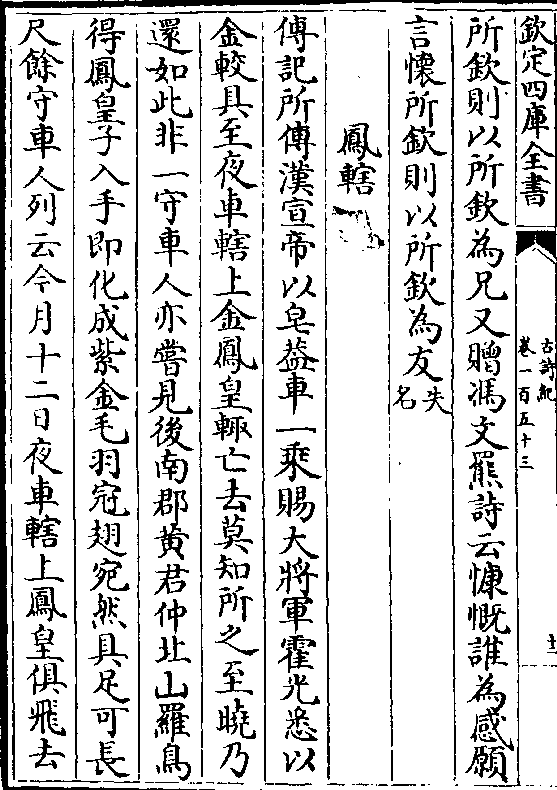 欽定四庫全書
古詩紀
卷一百五十三
十二
所欽則以所欽為兄又贈馮文羆詩云慷慨誰為感願
言懷所欽則以所欽為友失名
鳳轄
傳記所傳漢宣帝以皂葢車一乘賜大將軍霍光悉以
金較具至夜車轄上金鳳皇輙亡去莫知所之至曉乃
還如此非一守車人亦嘗見後南郡黄君仲北山羅鳥
得鳳皇子入手即化成紫金毛羽冠翅宛然具足可長
尺餘守車人列云今月十二日夜車轄上鳳皇俱飛去